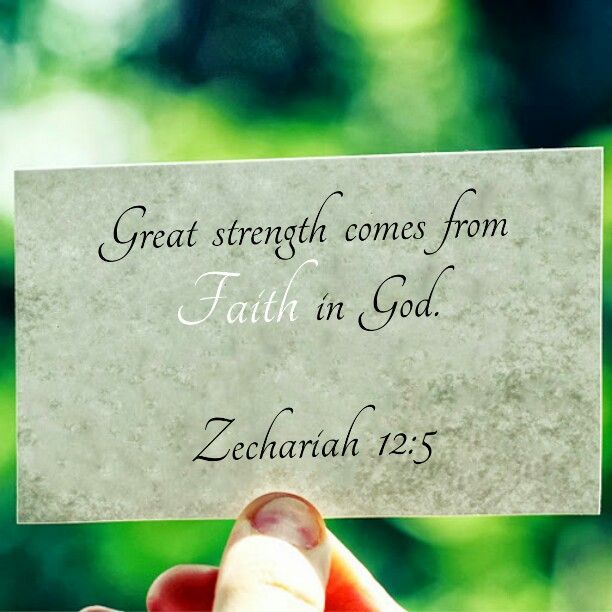 Great strength comes from
Faith in God.
Zechariah 12:5